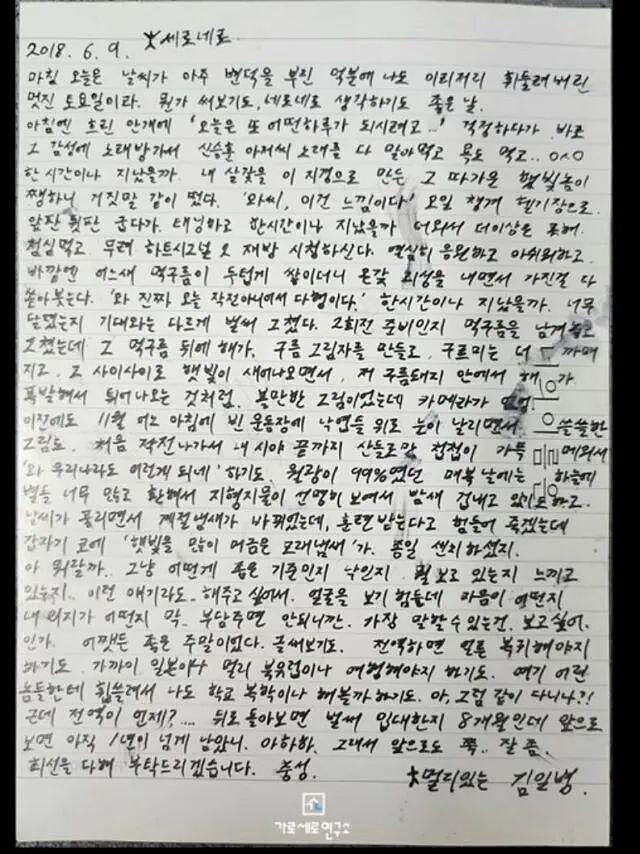 2018. 6. 9. 세로네로
마침 오늘은 날씨가 아주 변덕을 부린 덕분에 나도 이리저리 휘둘려버린
멋진 토요일이라. 뭔가 써보기도, 네로네로 생각하기도 좋은 날.
아침엔 흐린 안개에 '오늘은 또 어떤하루가 되시려고...' 걱정하다가 바로
그 감성에 노래방가서 신승훈 아저씨 노래를 다 말아먹고 욕도 먹고.. 0ㅅ0
한시간이나 지났을까. 내 살갗을 이 지경으로 만든 그 따가운 햇빛놈이
쨍하니 거짓말 같이 떴다. '와씨, 이건 느낌이다' 오일 챙겨 헬기장으로.
앞판 뒷판 굽다가. 태닝하고 한시간이나 지났을까 더워서 더이상은 못해.
점심먹고. 무려 하트시그널 2 재방 시청하신다. 열심히 응원하고 아쉬워하고.
바깥엔 어느새 먹구름이 두텁게 쌓이더니 온갖 괴성을 내면서 가진걸 다
쏟아붓는다. '와 진짜 오늘 작전아니여서 다행이다.' 한시간이나 지났을까. 너무
달렸는지 기대와는 다르게 벌써 그쳤다. 2회전 준비인지 먹구름을 남겨놓고
그쳤는데 그 먹구름 뒤에 해가. 구름 그림자를 만들고, 구르미는 더 까매
지고. 그 사이사이로 햇빛이 새어나오면서, 저 구름돼지 안에서 해가
폭발해서 튀어나오는 것처럼. 볼만한 그림이었는데 카메라가
이전에도 11월 어느 아침에 빈 운동장에 낙엽들 위로 눈이 날리면서 쓸쓸한
그림도. 처음 작전나가서 내 시야 끝까지 산들로만 첩첩이 가득 메워서
'와 우리나라도 이런게 되네' 하기도. 월광이 99%였던 매복날에는 하늘에
별들 너무 많고 환해서 지형지물이 선명히 보여서 밤새 겁내고 있기도하고.
날씨가 풀리면서 계절냄새가 바뀌었는데, 훈련받는다고 힘들어 죽겠는데
갑자기 코에 '햇빛을 많이 머금은 모래냄새'가. 종일 센치하셨지.
아 뭐랄까.. 그냥 어떤게 좋은 기준인지 낙인지 뭘 보고 있는지 느끼고
있는지.. 이런 얘기라도.. 해주고 싶어서. 얼굴을 보기 힘들데 마음이 어떤지
내 의지가 어떤지 막.. 부담주면 안되니깐. 가장 말할수있는건. 보고싶어.
인가. 어쨋든 좋은 주말이었다. 글써보기도. 전역하면 얼른 복귀해야지
하기도. 가까이 일본이나 멀리 북유럽이나 여행해야지 하기도. 여기 어린
놈들한테 휩쓸려서 나도 학교 복학이나 해볼까 하기도. 아, 그럼 같이 다니나?!
근데 전역이 언제?.... 뒤로 돌아보면 벌써 입대한지 8개월인데 앞으로
보면 아직 1년이 넘게 남았니. 아하하. 그래서 앞으로도 쭉.. 잘 좀.
최선을 다해 부탁드리겠습니다. 충성.
멀리있는 김일병.
가로세로연구소